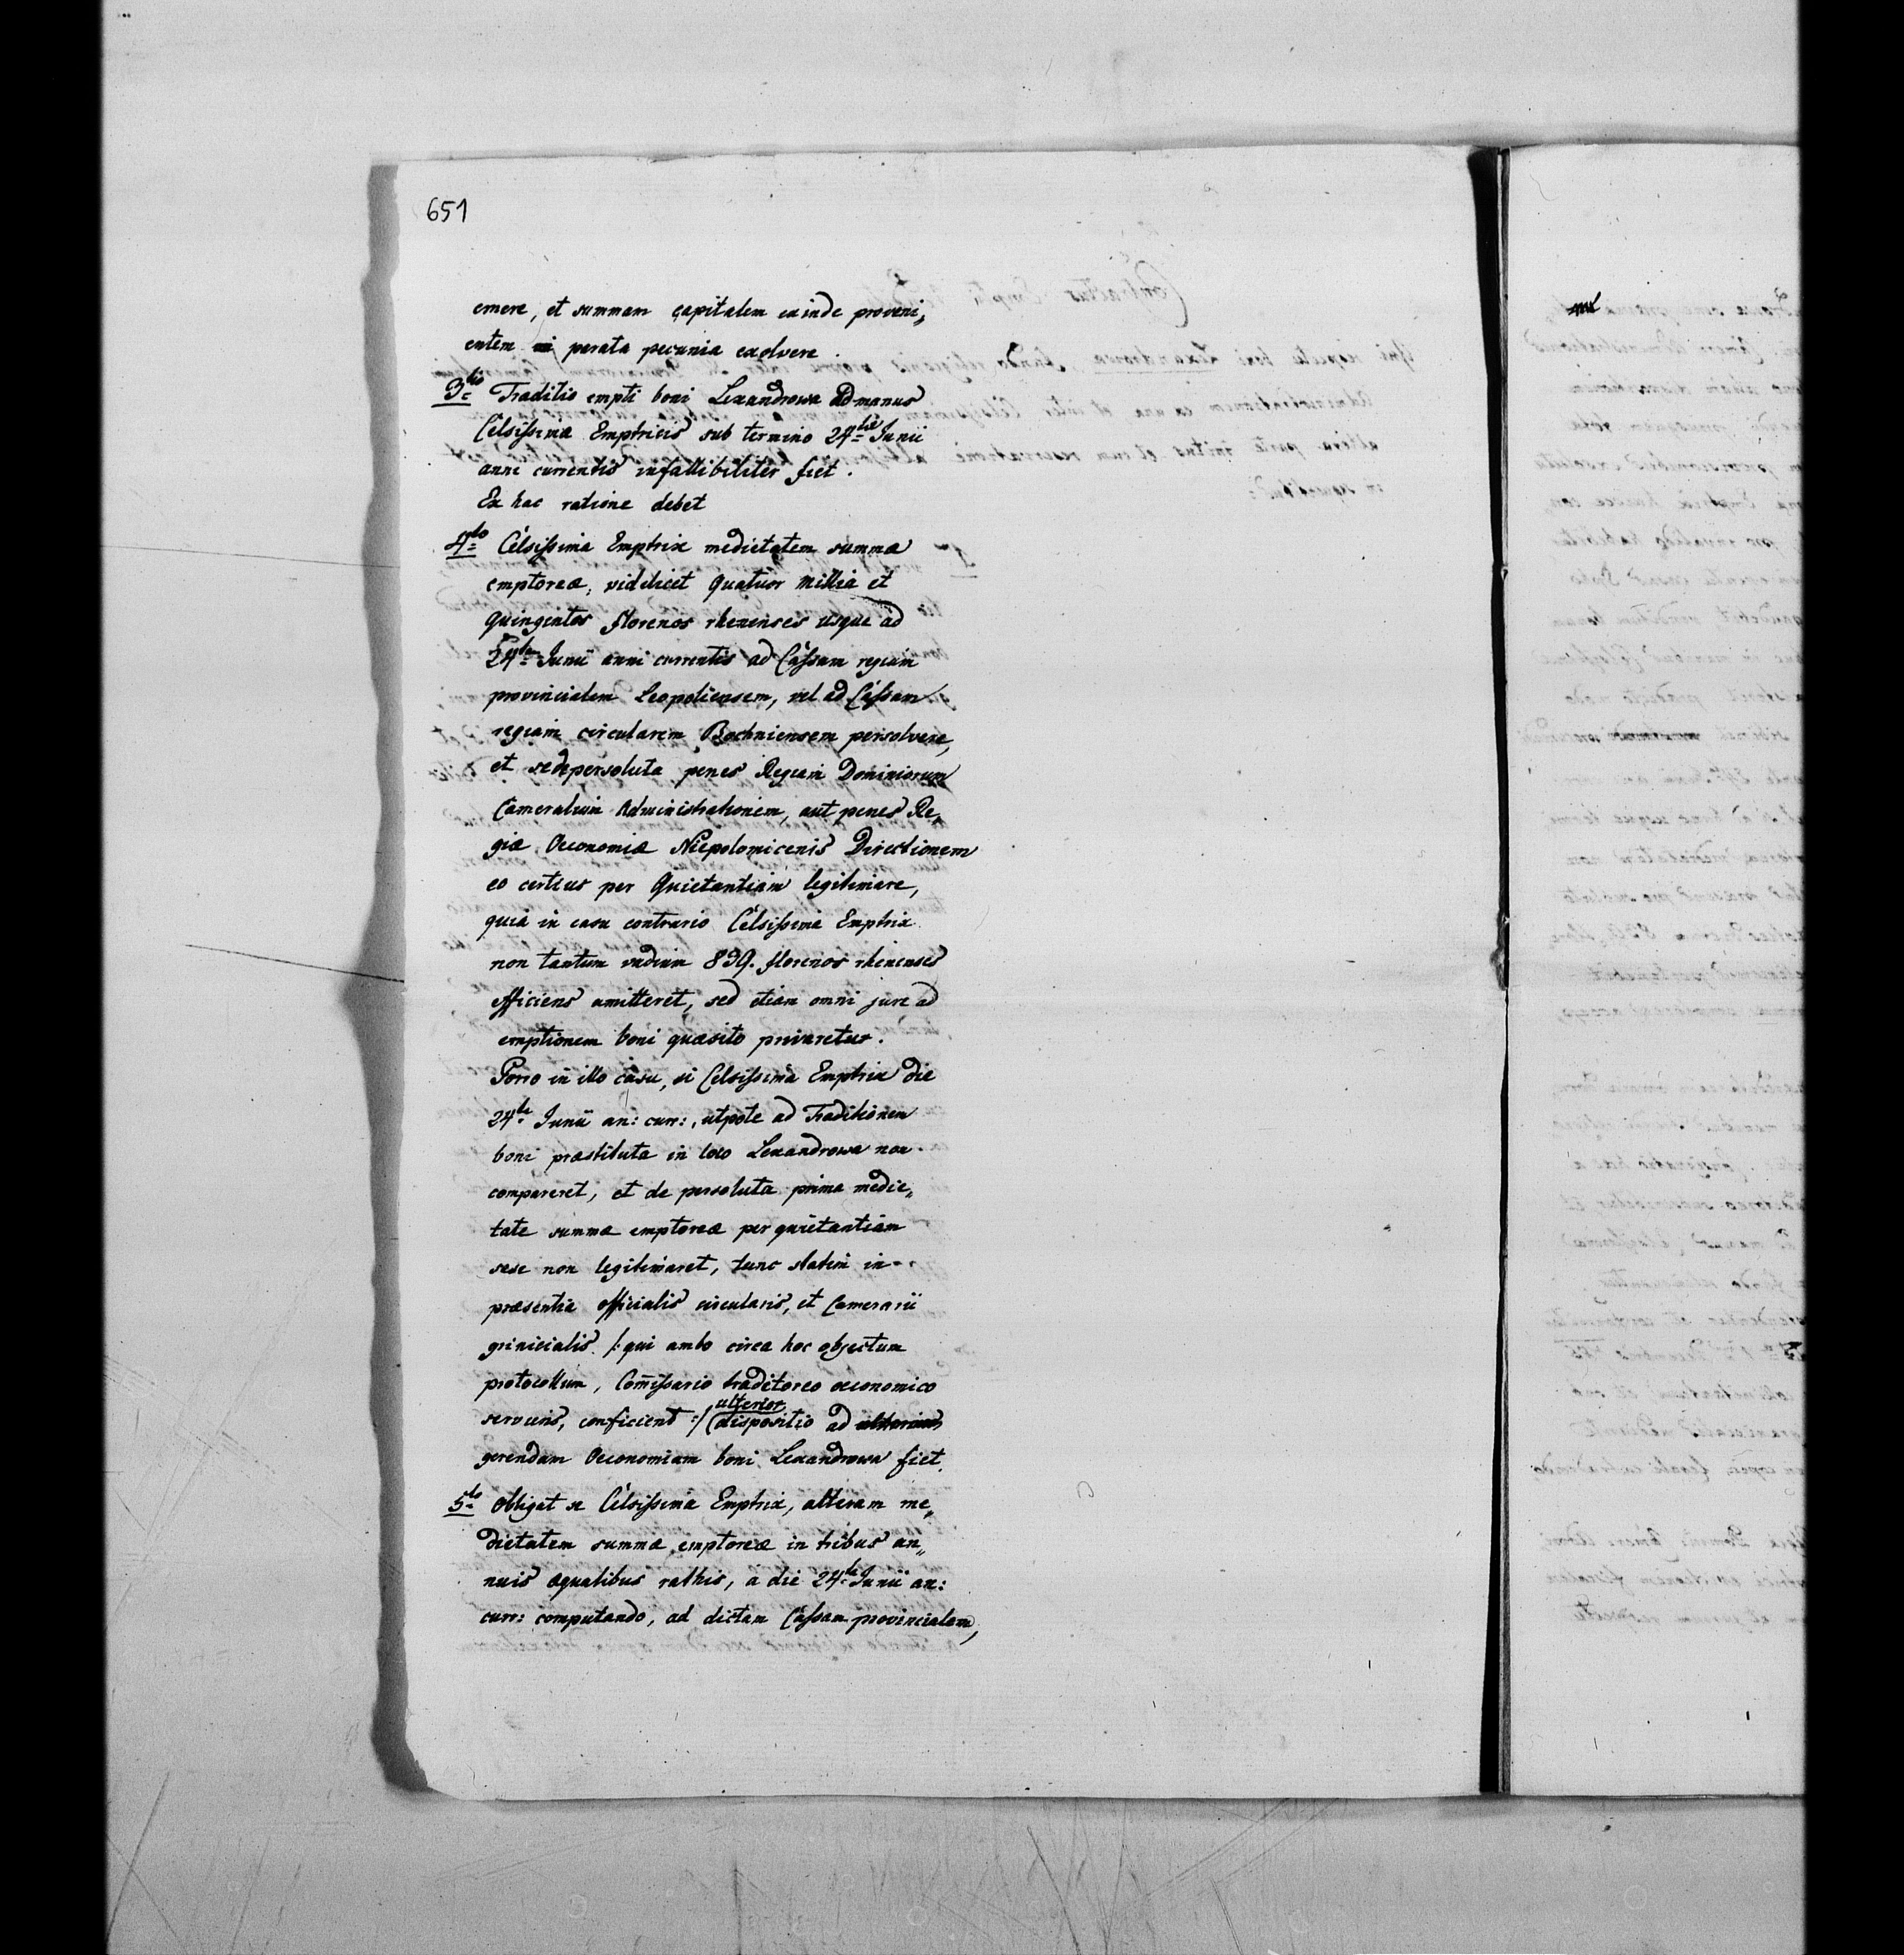 651
emere, et summam capitalem exinde proveni„
entem parata pecunia exolvere.
3tio Traditio empti boni Lexandrowa ad manus
Celsissimæ Emptricis sub termino 24ta Junii
anni currentis infallibiliter fiet.
Ex hac ratione debet
4to Celsissima Emptrix medietatem summæ
emptoreæ, videlicet quatuor Millia et
quingentos florenos rhenenses usque ad
24ta Junii anni currentis ad Cassam regiam
provincialem Leopoliensem, vel ad Cassam
regiam circularem Bochniensem persolvere,
et se de persoluta penes Regiam Dominiorum
Cameralium Administrationem, aut penes Re„
giæ Oeconomiæ Niepolomicenis Directionem
eo certius per Quietantiam legitimare,
quia in casu contrario Celsissima Emptrix
non tantum vadium 839. florenos rhenenses
efficiens amitteret, sed etiam omni jure ad
emptionem boni quæsito privaretur.
Porro in illo casu, si Celsissima Emptrix die
24ta Junii an: curr:, utpote ad Traditionem
boni præstituta in loco Lexandrowa non
compareret, et de persoluta prima medie„
tate summæ emptoreæ per quietantiam
sese non legitimaret, tunc statim in
præsentia officialis circularis, et Camerarii
granicialis /: qui ambo circa hoc objectum
protocollum, Com̄issario traditoreo oeconomico
serviens, conficient :/ ulterior dispositio ad
gerendam Oeconomiam boni Lexandrowa fiet.
5to Obligat se Celsissima Emptrix, alteram me„
dietatem summæ emptoreæ in tribus an„
nuis æqualibus rathis, a die 24ta Junii an:
curr: computando, ad dictam Cassam provincialem,